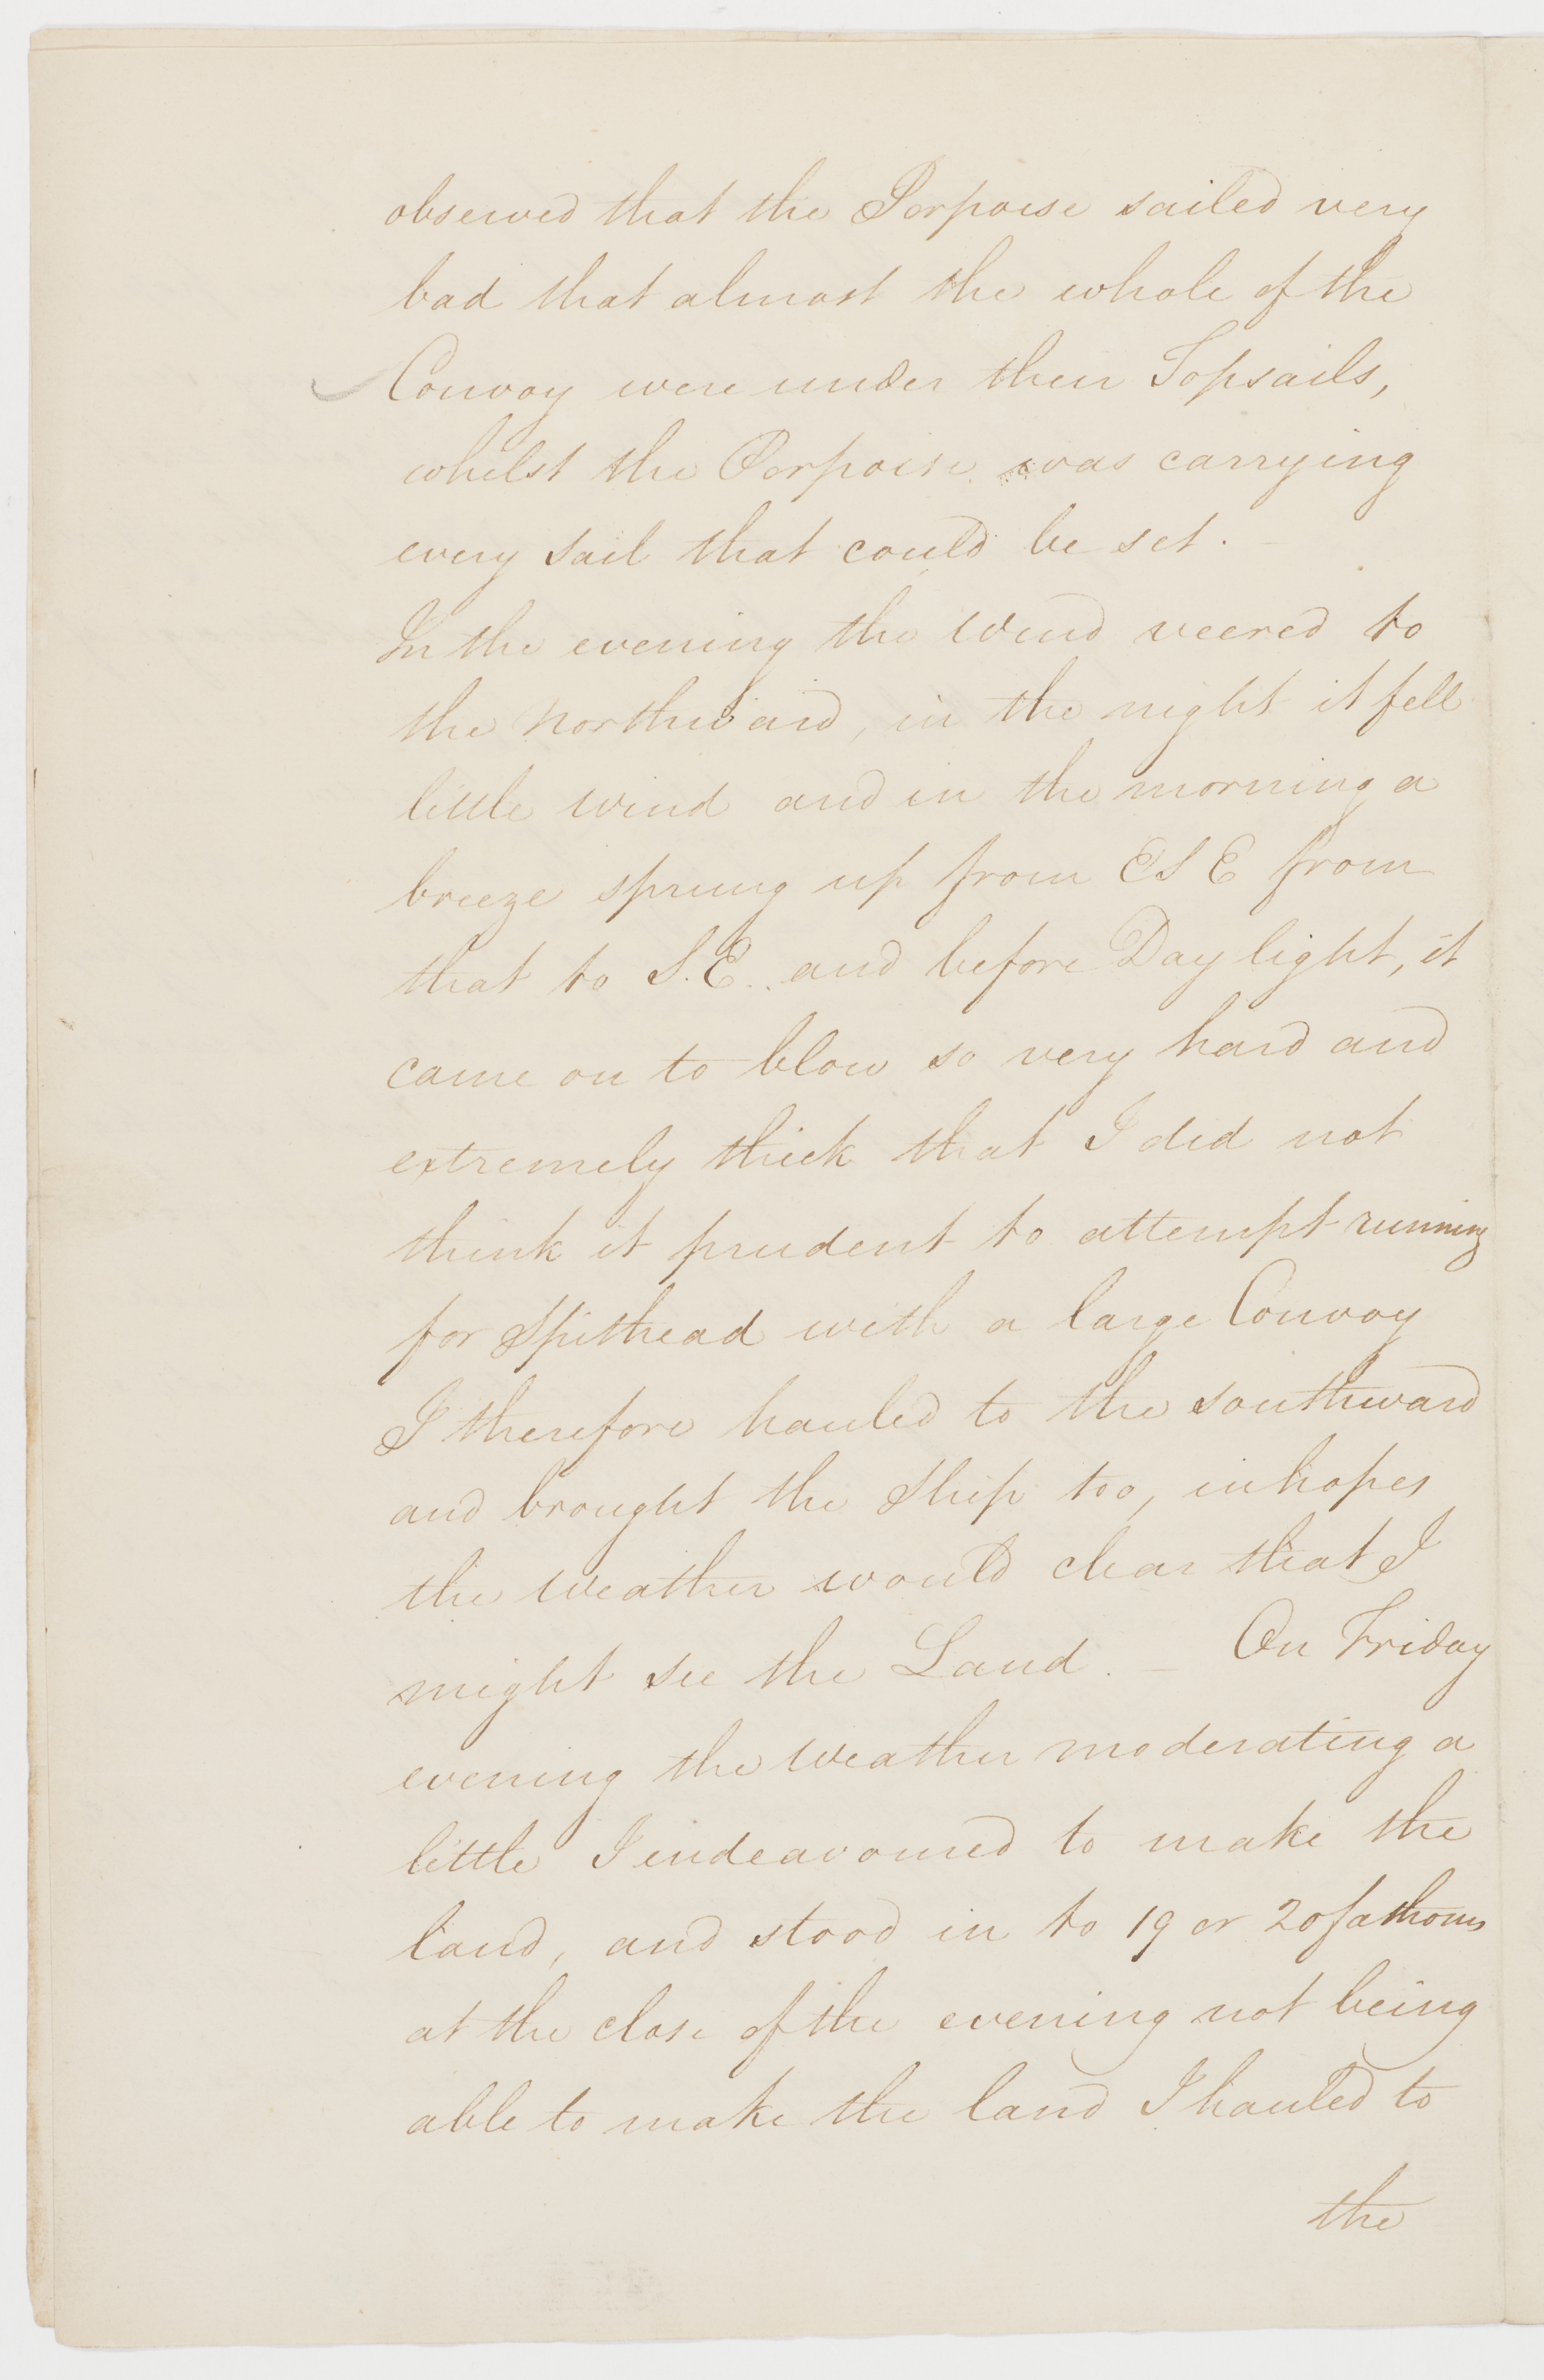 observed that the Porpoise sailed very
bad that almost the whole of the
Convoy were under their Topsails,
whilst the Porpoise was carrying
every sail that could be set. —
In the evening the Wind veered to
the Northward, in the night it fell
little wind and in the morning a
breeze sprung up from ESE from
that to S.E. and before Day light, it
came on to blow so very hard and
extremely thick that I did not
think it prudent to attempt running
for Spithead with a large Convoy
I therefore hauled to the southward
and brought the Ship too, in hopes
the Weather would clear that I
might see the Land. — On Friday
evening the Weather moderating a
little I endeavoured to make the
land, and stood in to 19 or 20 fathoms
at the close of the evening not being
able to make the land I hauled to
the